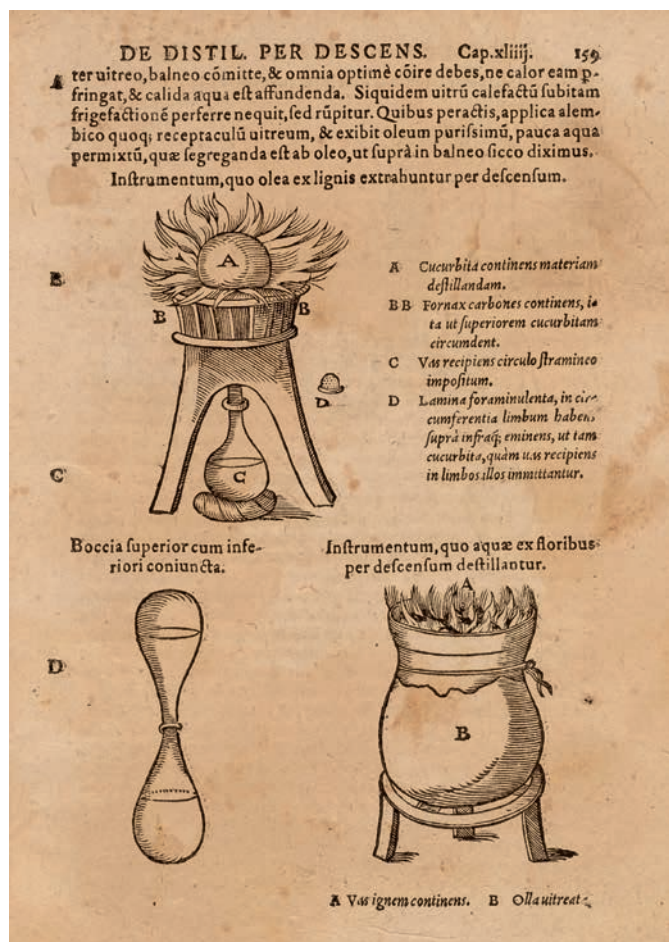 DE DISTIL. PER DESCENS. Cap.xliiij. 159
A ter uitreo, balneo cōmitte, & omnia optimè cōire debes, ne calor eam p-
fringat, & calida aqua est affundenda. Siquidem uitrū calefactū subitam
frigefactionē perferre nequit, sed rūpitur. Quibus peractis, applica alem-
bico quoq; receptaculū uitreum, & exibit oleum purissimū, pauca aqua
permixtū, quæ segreganda est ab oleo, ut suprà in balneo sicco diximus.
Instrumentum, quo olea ex lignis extrahuntur per descensum.
A
B
B
B
D
C
C
A Cucurbita continens materiam
destillandam.
B B Fornax carbones continens, i-
ta ut superiorem cucurbitam
circumdent.
C Vas recipiens circulo stramineo
impositum.
D Lamina foraminulenta, in cir-
cumferentia limbum habens,
suprà infraq; eminens, ut tam
cucurbita, quàm uas recipiens
in limbos illos immittantur.
Boccia superior cum infe-
riori coniuncta.
Instrumentum, quo aquæ ex floribus
per descensum destillantur.
D
A
B
A Vas ignem continens. B Olla uitreat